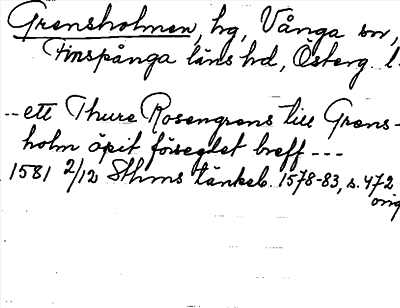 Grensholmen, hg, Vånga sn,
Finspånga läns hd, Österg. l.
-- ett Thure Rosengrens till Grens-
holm öpit förseglet breff ---
1581 2/12 Sthms tänkeb. 1578-83, s. 472
orig